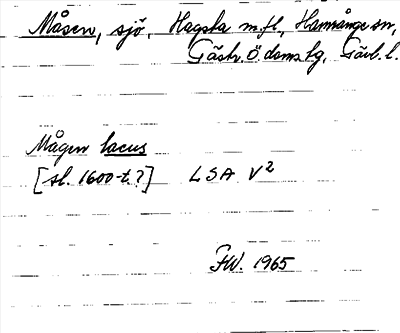 Måsen, sjö, Hagsta m.fl., Hamrånge sn,
Gästr. Ö. doms.hg, Gävl. l.
Mågen lacus
[sl. 1600-t.?] LSA V²
FW. 1965